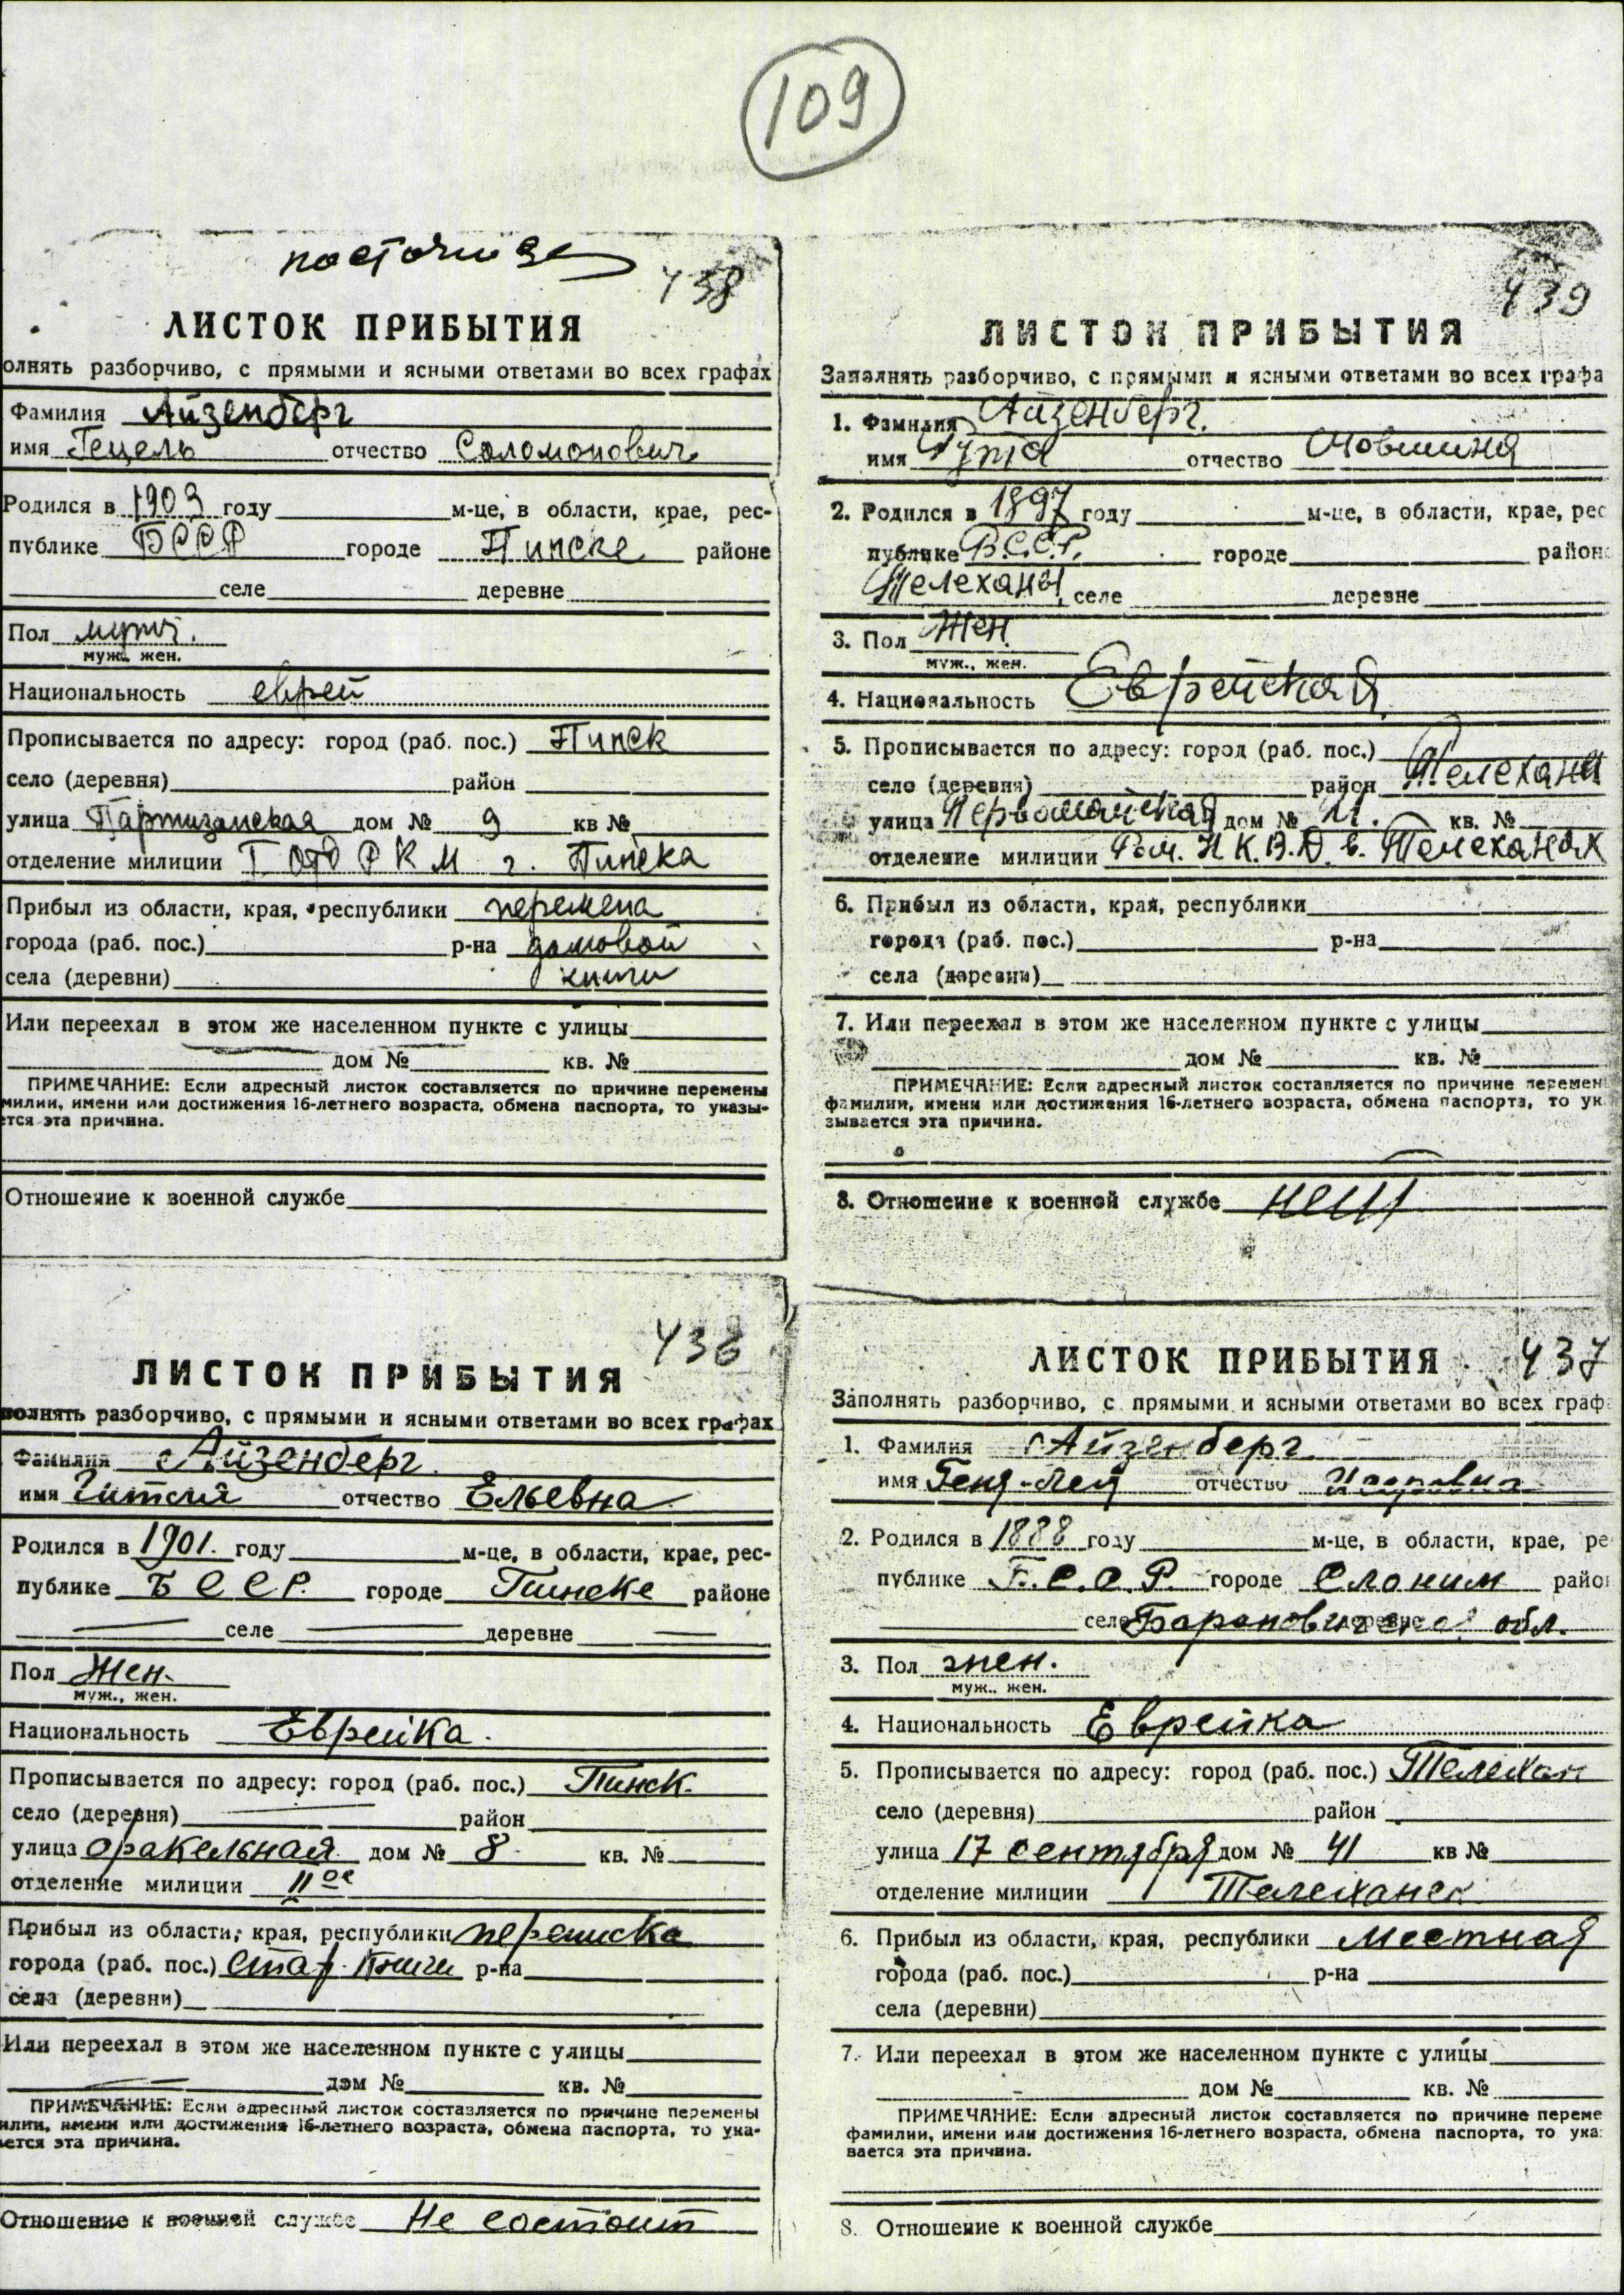 109
438
ЛИСТОК ПРИБЫТИЯ
олнять разборчиво, с прямыми и ясными ответами во всех графах
Фамилия Айзенберг
имя Гецель отчество Соломонович
Родился в 1903 году м-це, в области, крае, рес-
публике БССР городе Пинске районе
селе деревне
Пол муж.
муж., жен.
Национальность еврей
Прописывается по адресу: город (раб. пос.) Пинск
село (деревня) район
улица Партизанская дом № 9 кв №
отделение милиции I отд Р К М г. Пинска
Прибыл из области, края, республики перемена
города (раб. пос.) р-на домовой
села (деревни) книги
Или переехал в этом же населенном пункте с улицы
дом № кв. №
ПРИМЕЧАНИЕ: Если адресный листок составляется по причине перемены
милии, имени или достижения 16-летнего возраста, обмена паспорта, то указы-
ется эта причина.
Отношение к военной службе
439
ЛИСТОК ПРИБЫТИЯ
Заполнять разборчиво, с прямыми и ясными ответами во всех графа
1. Фамилия Айзенберг.
имя отчество Иовшина
2. Родился в 1897 году м-це, в области, крае, рес
публике Б.С.С.Р. городе районе
Телеханы селе деревне
3. Пол Жен.
муж., жен.
4. Национальность Еврейская
5. Прописывается по адресу: город (раб. пос.)
село (деревня) район Телехани
улица Первомайская дом № 21. кв. №
отделение милиции Н.К.В.Д. в. Телеханах
6. Прибыл из области, края, республики
города (раб. пос.) р-на
села (деревни)
7. Или переехал в этом же населенном пункте с улицы
дом № кв. №
ПРИМЕЧАНИЕ: Если адресный листок составляется по причине перемен
фамилии, имени или достижения 16-летнего возраста, обмена паспорта, то ук
зывается эта причина.
8. Отношение к военной службе нет
436
ЛИСТОК ПРИБЫТИЯ
полнять разборчиво, с прямыми и ясными ответами во всех графах
Фамилия Айзенберг
имя Гитля отчество Ельевна
Родился в 1901. году м-це, в области, крае, рес-
публике Б С С Р. городе Пинске районе
селе деревне
Пол Жен.
муж., жен.
Национальность Еврейка.
Прописывается по адресу: город (раб. пос.) Пинск.
село (деревня) район
улица Факельная дом № 8 кв. №
отделение милиции II ое
Прибыл из области, края, республики переписка
города (раб. пос.) стар. книги р-на
села (деревни)
Или переехал в этом же населенном пункте с улицы
дом № кв. №
ПРИМЕЧАНИЕ: Если адресный листок составляется по причине перемены
илии, имени или достижения 16-летнего возраста, обмена паспорта, то ука-
ается эта причина.
Отношение к военной службе Не состоит
437
ЛИСТОК ПРИБЫТИЯ
Заполнять разборчиво, с прямыми и ясными ответами во всех граф
1. Фамилия Айзенберг
имя Геня-Лея отчество
2. Родился в 1888 году м-це, в области, крае, ре
публике Б.С.С.Р. городе Слоним райо
селе деревне Барановичской обл.
3. Пол жен.
муж., жен.
4. Национальность Еврейка
5. Прописывается по адресу: город (раб. пос.) Телехан
село (деревня) район
улица 17 сентября дом № 41 кв №
отделение милиции
6. Прибыл из области, края, республики местная
города (раб. пос.) р-на
села (деревни)
7. Или переехал в этом же населенном пункте с улицы
дом № кв. №
ПРИМЕЧАНИЕ: Если адресный листок составляется по причине переме
фамилии, имени или достижения 16-летнего возраста, обмена паспорта, то ука
вается эта причина.
8. Отношение к военной службе